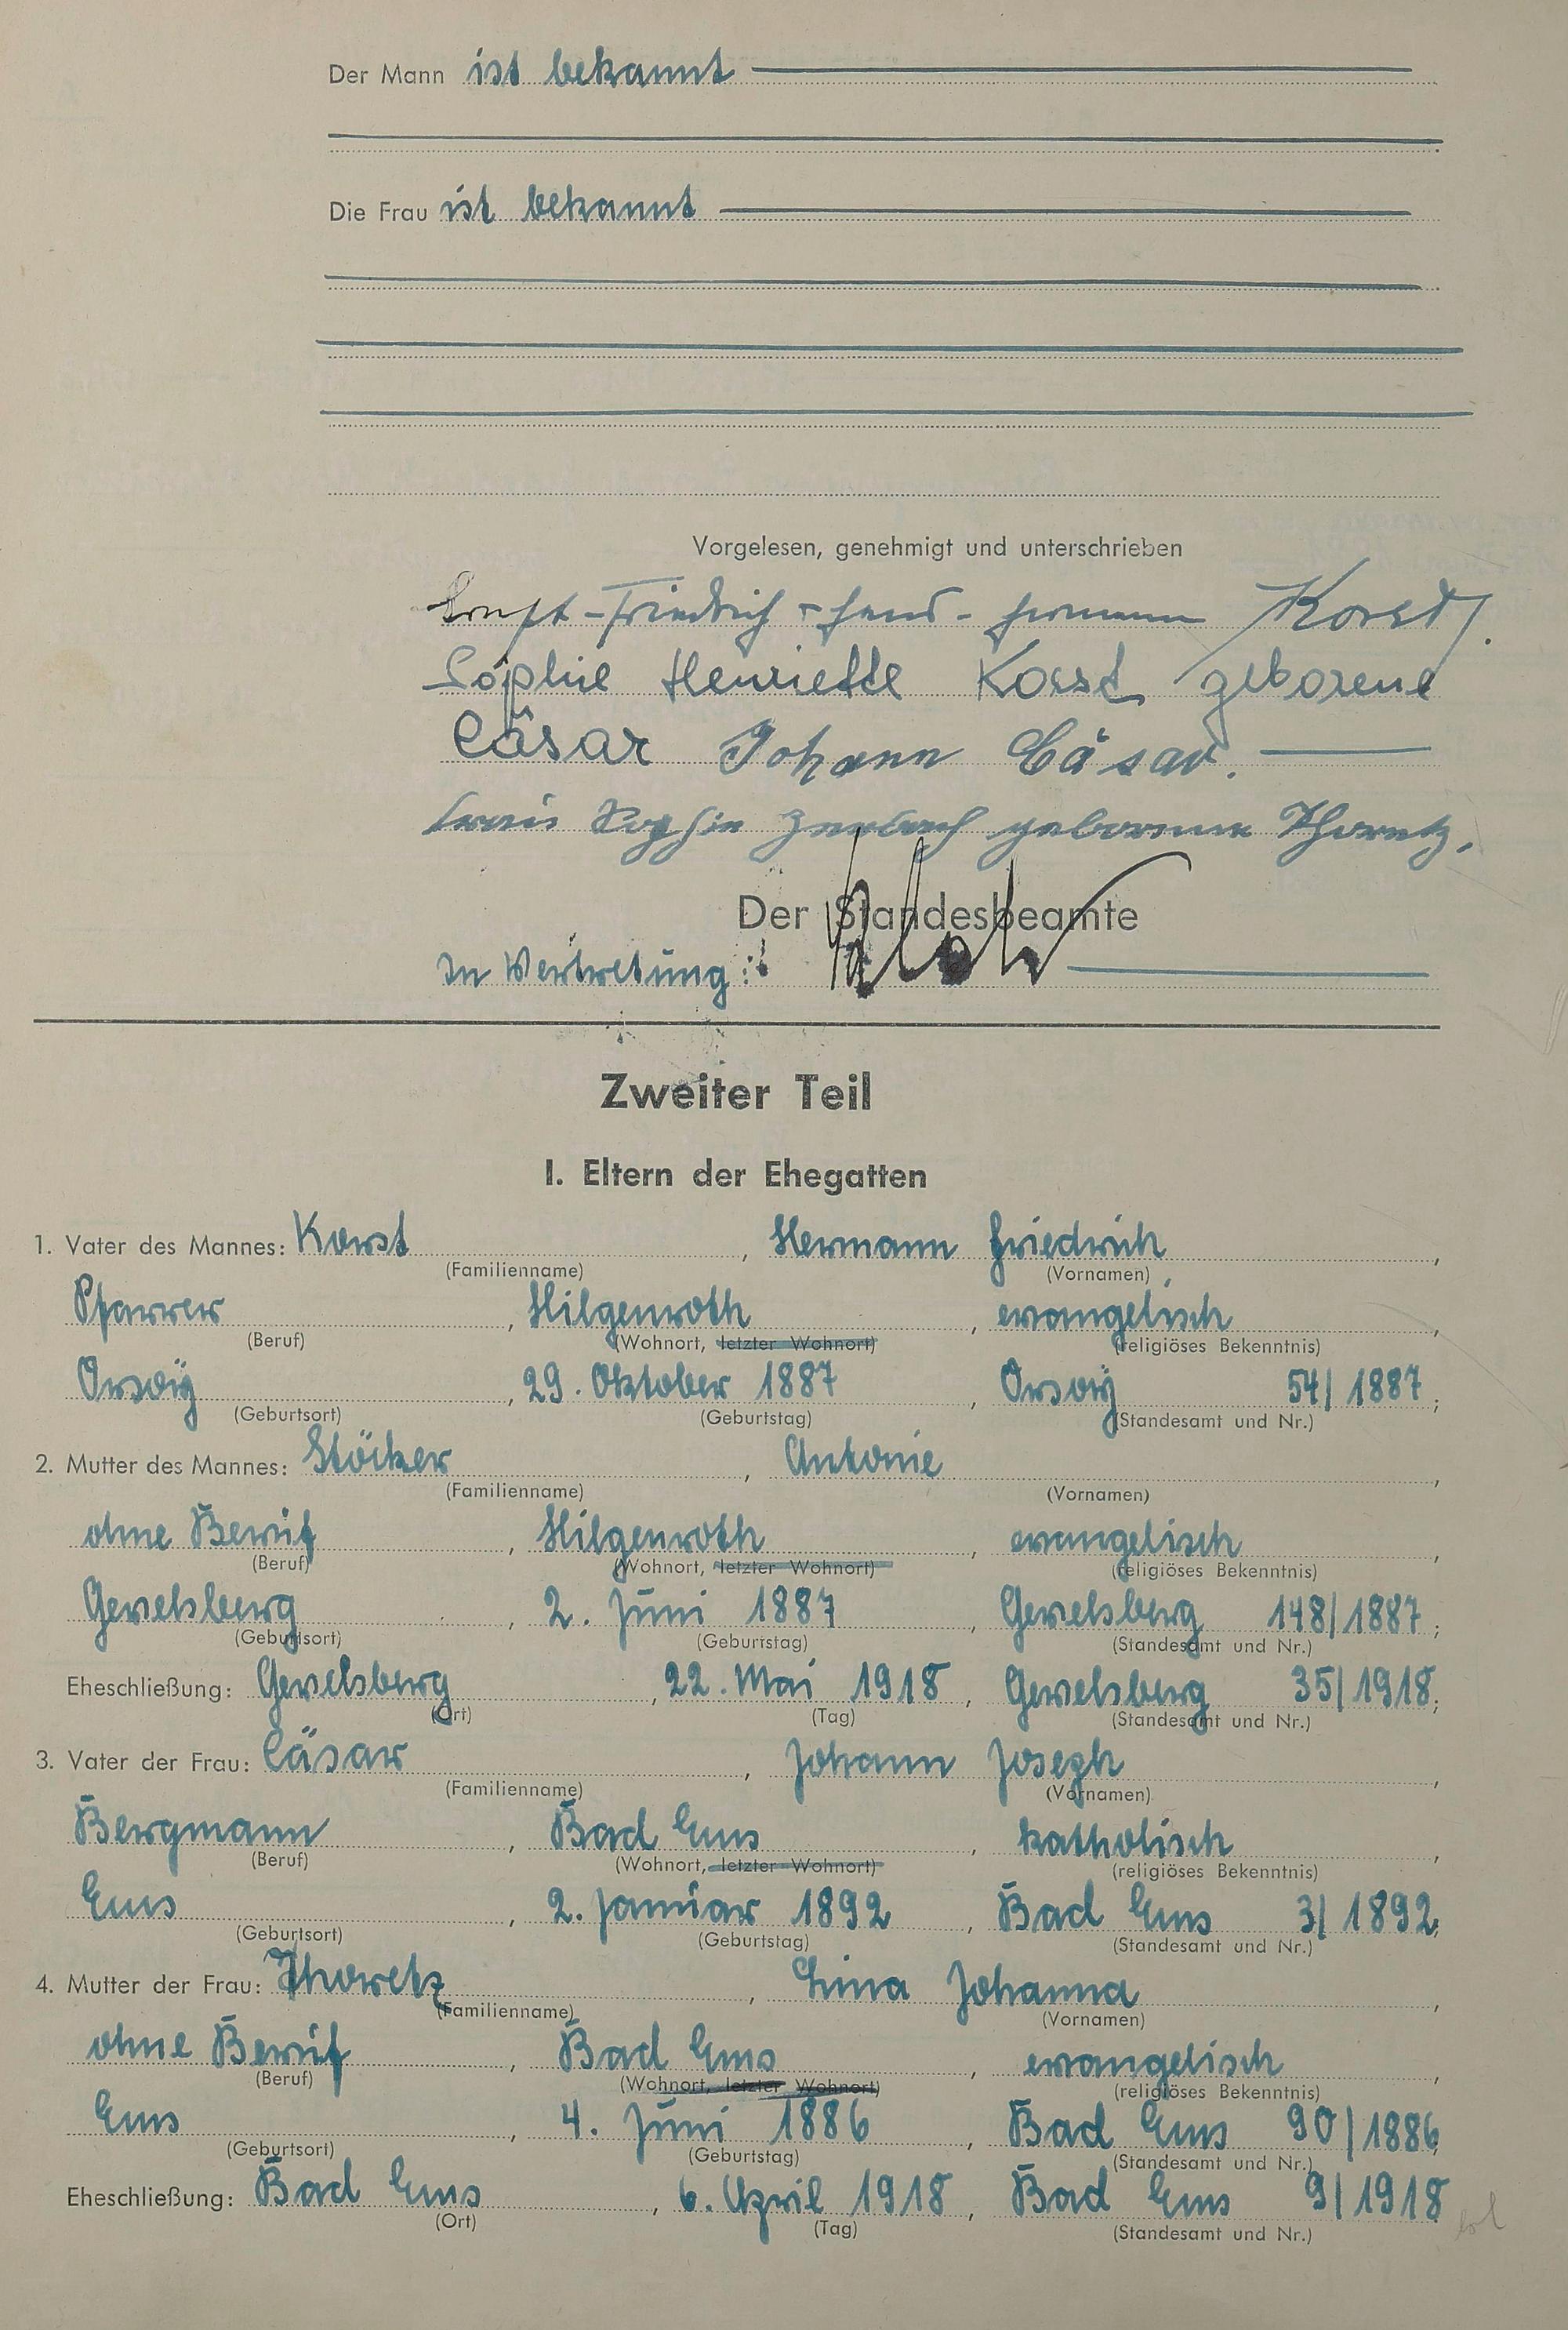 Der Mann ist bekannt
Die Frau ist bekannt
Vorgelesen, genehmigt und unterschrieben
Ernst-Friedrich-Hans-Hermann Korst.
Sophie Henriette Korst geborene
Cäsar Johann Cäsar.
Sophie geborene Thoretz.
Der Standesbeamte
In Vertretung:
Zweiter Teil
I. Eltern der Ehegatten
1. Vater des Mannes: Korst, Hermann Friedrich,
(Familienname) (Vornamen)
Pfarrer, Hilgenroth, evangelisch,
(Beruf) (Wohnort, letzter Wohnort) (religiöses Bekenntnis)
Orsoy, 29. Oktober 1887, Orsoy 54/1887;
(Geburtsort) (Geburtstag) (Standesamt und Nr.)
2. Mutter des Mannes: Stöcker, Antonie,
(Familienname) (Vornamen)
ohne Beruf, Hilgenroth, evangelisch,
(Beruf) (Wohnort, letzter Wohnort) (religiöses Bekenntnis)
Gevelsberg, 2. Juni 1887, Gevelsberg 148/1887;
(Geburtsort) (Geburtstag) (Standesamt und Nr.)
Eheschließung: Gevelsberg, 22. Mai 1918, Gevelsberg 35/1918;
(Ort) (Tag) (Standesamt und Nr.)
3. Vater der Frau: Cäsar, Johann Joseph,
(Familienname) (Vornamen)
Bergmann, Bad Ems, katholisch,
(Beruf) (Wohnort, letzter Wohnort) (religiöses Bekenntnis)
Ems, 2. Januar 1892, Bad Ems 3/1892;
(Geburtsort) (Geburtstag) (Standesamt und Nr.)
4. Mutter der Frau: Thoretz, Lina Johanna,
(Familienname) (Vornamen)
ohne Beruf, Bad Ems, evangelisch,
(Beruf) (Wohnort, letzter Wohnort) (religiöses Bekenntnis)
Ems, 4. Juni 1886, Bad Ems 90/1886;
(Geburtsort) (Geburtstag) (Standesamt und Nr.)
Eheschließung: Bad Ems, 6. April 1918, Bad Ems 9/1918
(Ort) (Tag) (Standesamt und Nr.)